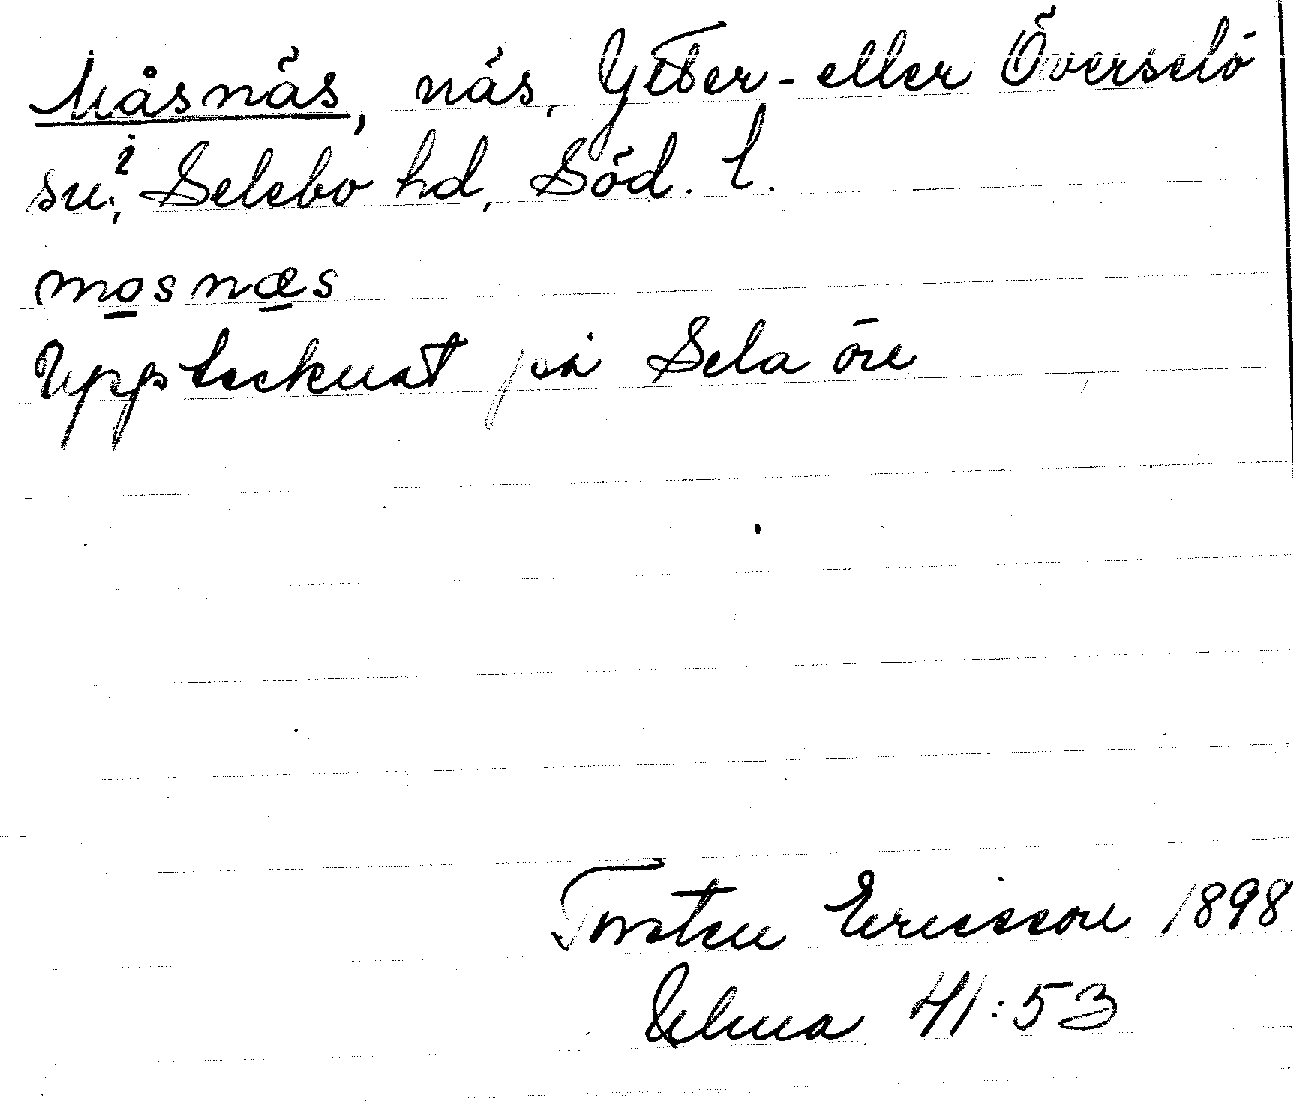 Måsnäs, näs, Ytter- eller Överselö
sn?, Selebo hd, Söd. l.
mosnæs
Upptecknat på Sela ön
Torsten Ericsson 1898
Ulma 41:53